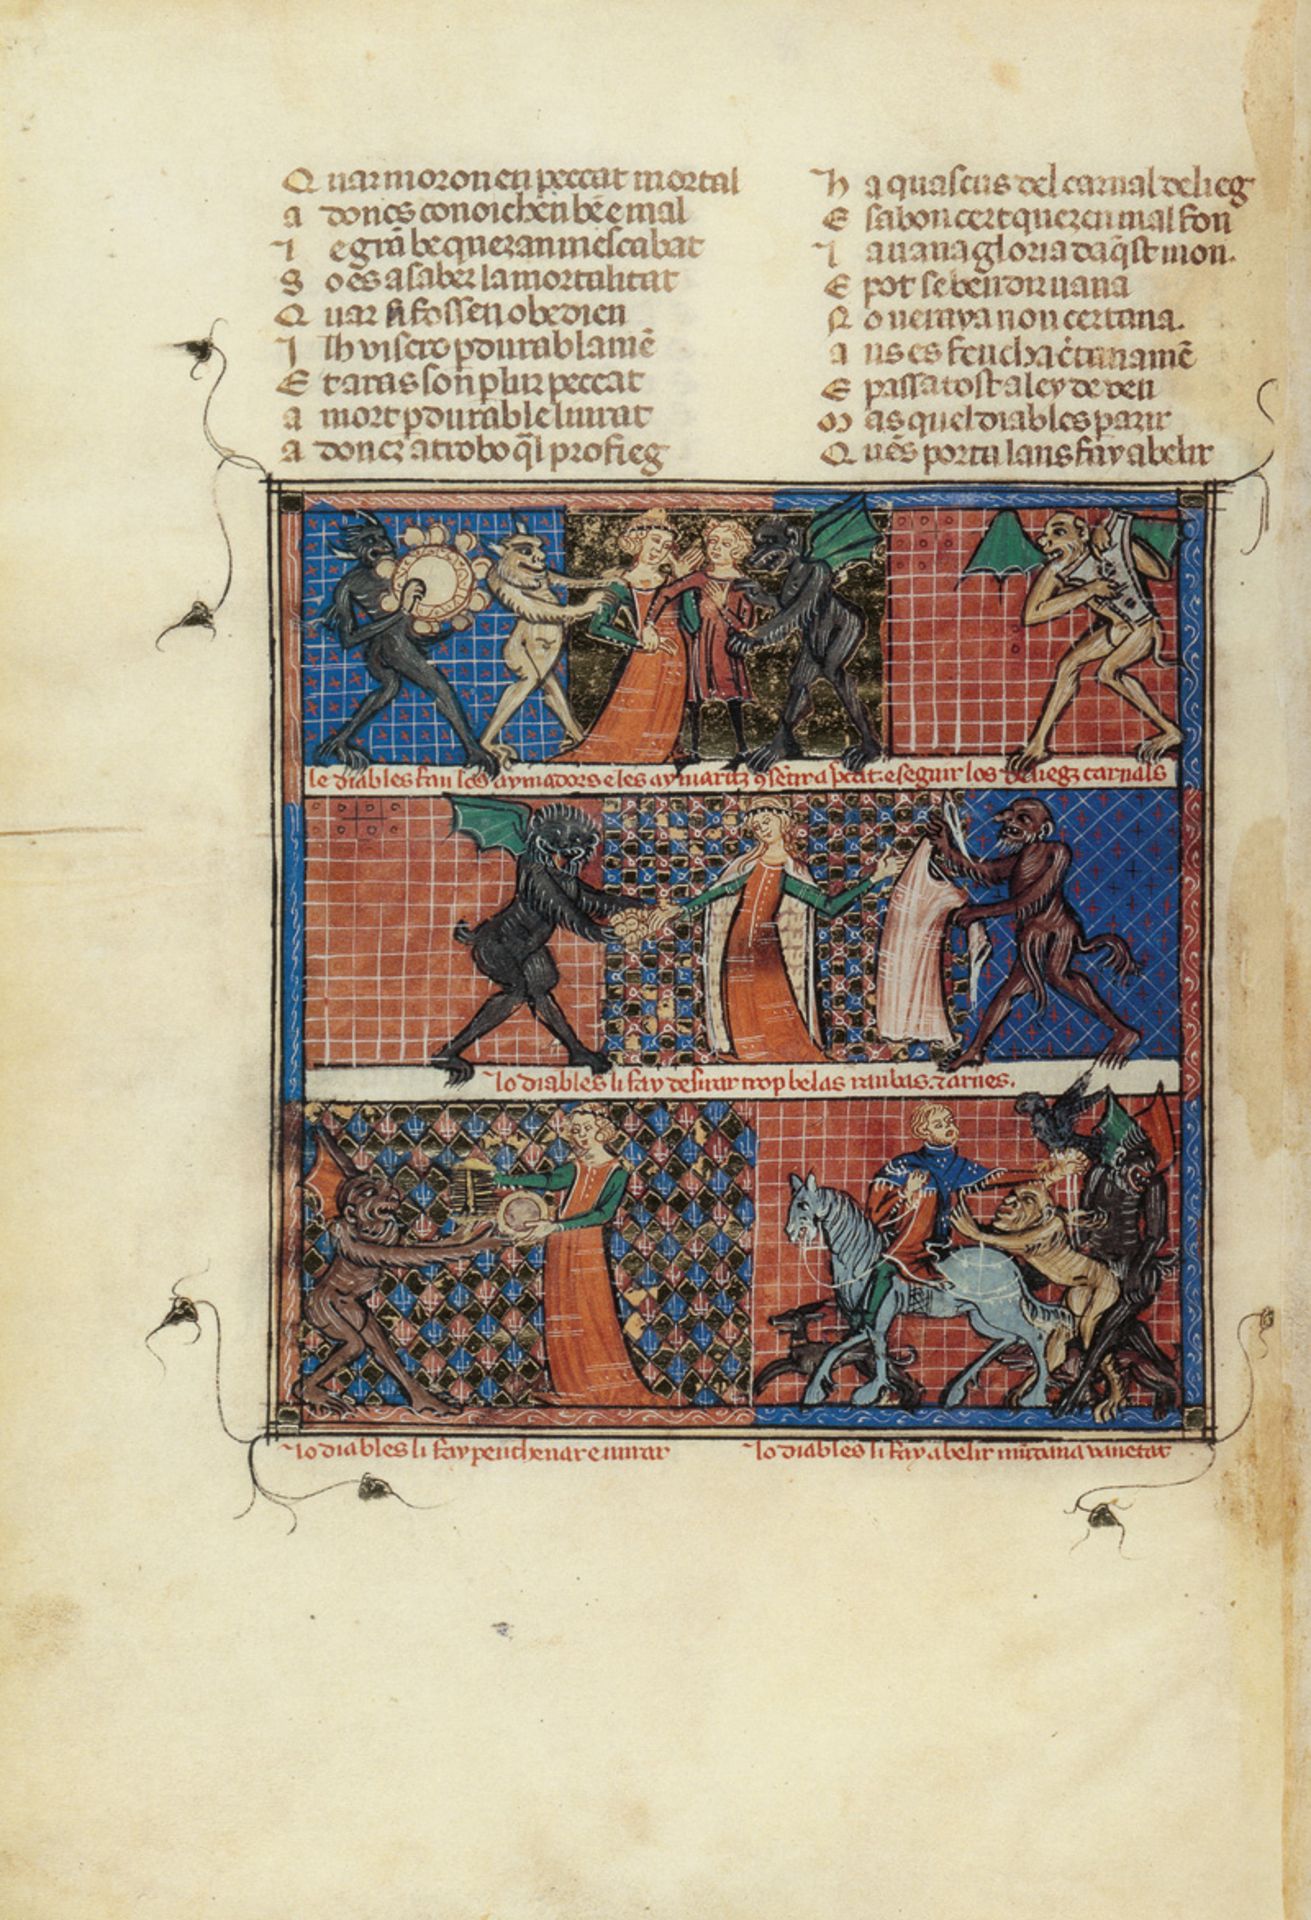 Quar moron en peccat mortal
adoncs conoichen bē e mal
Ie grā be quezan mescabat
So es a saber la mortalitat
Quar si fossen obedien
Ilh viscro pdurablamē
Et aras son plur peccat
a mort pdurable liurat
adoncz atrobo q̄l profieg
ha quascus del carnal delieg
E sabon cert quez en mal fon
la uana gloria daq̄st mon.
E pot se ben dir uana
No ueraya non certana.
aus es
E passa tost a ley de ven
Mas quel diables
le diables fan los aymadors e les e seguir los deliegz carnals
lo diables li fay desirar trop belas raubas. z arnes.
lo diables li fay penchenar e mirar
lo diables li fay abelir mūdana vanetat